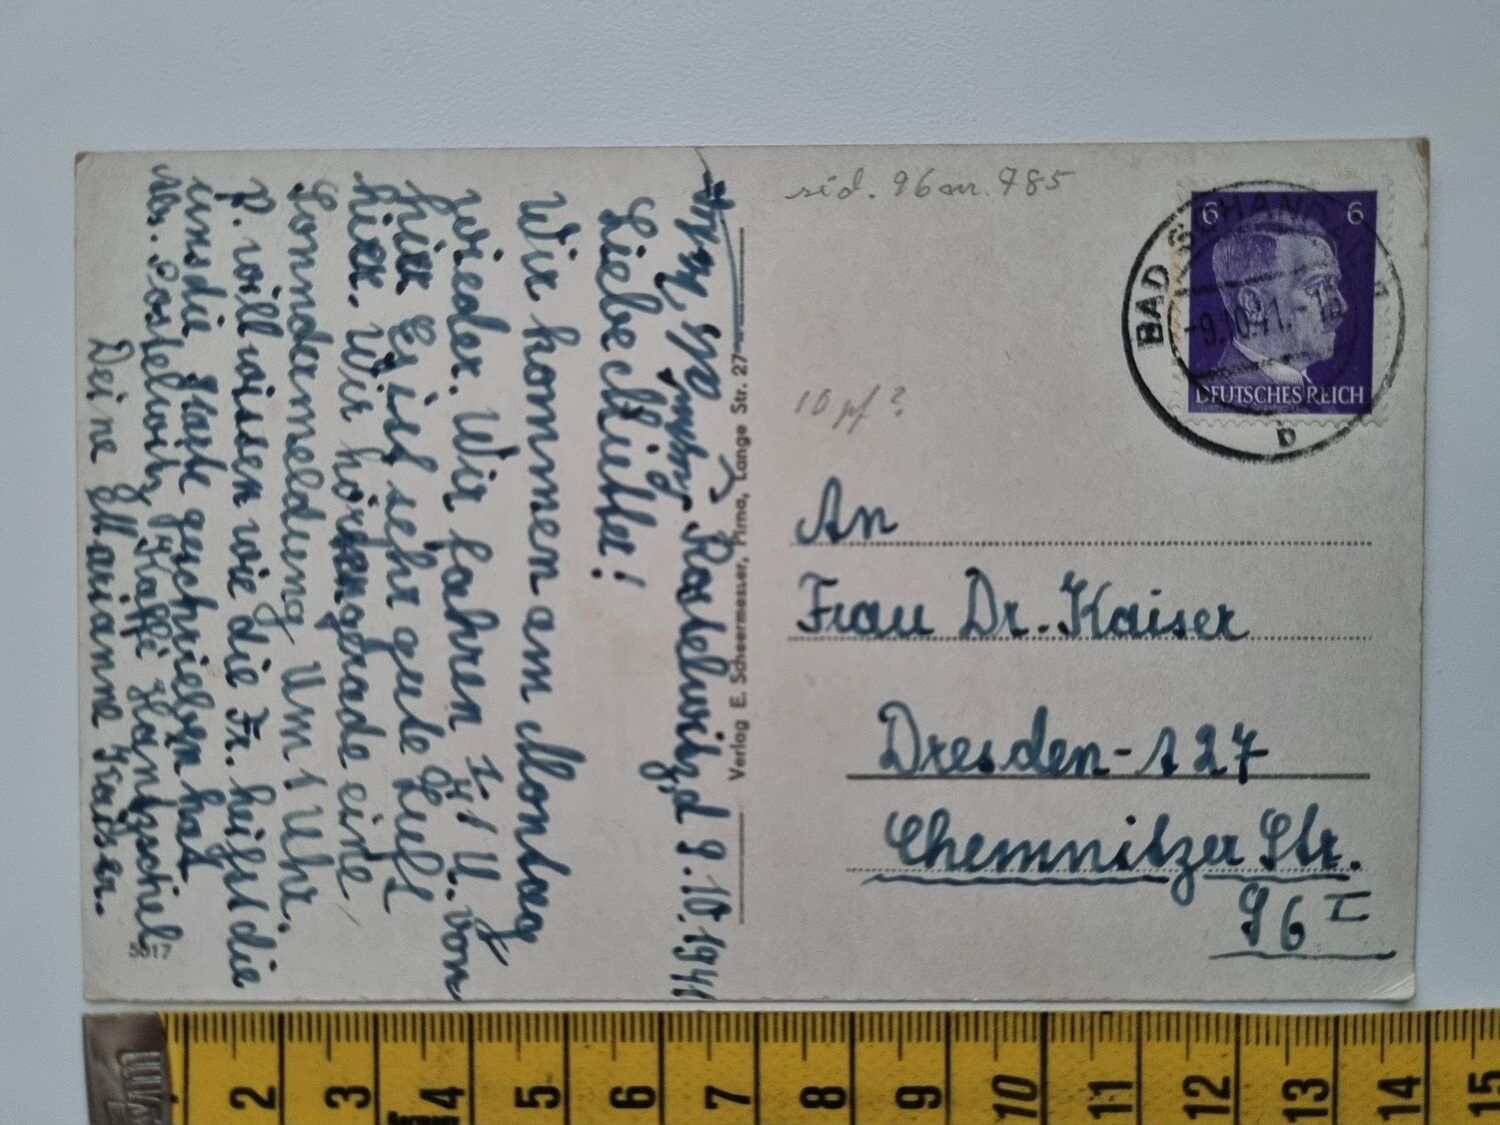 Rathewalde, d 9.10.1941
Liebe Mutter!
Wir kommen am Montag
wieder. Wir fahren ¼1 U. von
hier. Es ist sehr gute Luft
hier. Wir hören gerade eine
Sondermeldung Um 1 Uhr.
P. will wissen wie die Fr. heißt die
uns die Karte geschrieben hat
Kaffe
Deine Marianne Kaiser.
5517
Verlag E. Scheermesser, Pirna, Lange Str. 27
10 pf?
BAD SCHANDAU
-9.10.41.
b
6 6
DEUTSCHES REICH
An
Frau Dr. Kaiser
Dresden-A 27
Chemnitzer Str.
96 I
2 3 4 5 6 7 8 9 10 11 12 13 14 15